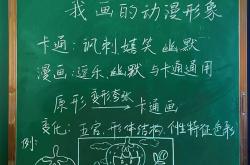 我画的动漫形象
卡通:讽刺嬉笑幽默
漫画:逗乐幽默与卡通通用
原形 变形夸张 卡通画
变化:五官、形体结构、个性特征色彩
例: